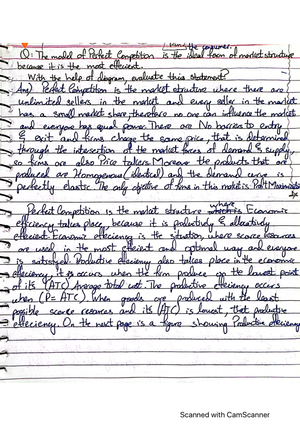 firms & the consumer.
Q: The model of Perfect Competition is the ideal form of market structure
because it is the most efficient.
With the help of diagram, evaluate this statement?
Ans) Perfect Competition is the market structure where there are
unlimited sellers in the market and every seller in the market
has a small market share, therefore no one can influence the market
and everyone has equal power. There are No barriers to entry
& exit and firms charge the same price, that is determined
through the intersection of the market forces of demand & supply
so firms are also Price takers. Moreover the products that are
produced are Homogenous (identical) and the demand curve is
perfectly elastic. The only objective of firms in this market is Profit Maximization
Perfect Competition is the market structure where Economic
efficiency takes place because it is productively & allocatively
efficient. Economic efficiency is the situation where scarce resources
are used in the most efficient and optimal way and everyone
is satisfied. Productive efficiency also takes place in the economic
efficiency, it occurs when the firm produce on the lowest point
of its (ATC) Average total cost. The productive efficiency occurs
when (P=ATC). When goods are produced with the least
possible scarce resources and its (ATC) is lowest, that productive
effeciency. On the next page is a figure showing Productive efficiency
Scanned with CamScanner